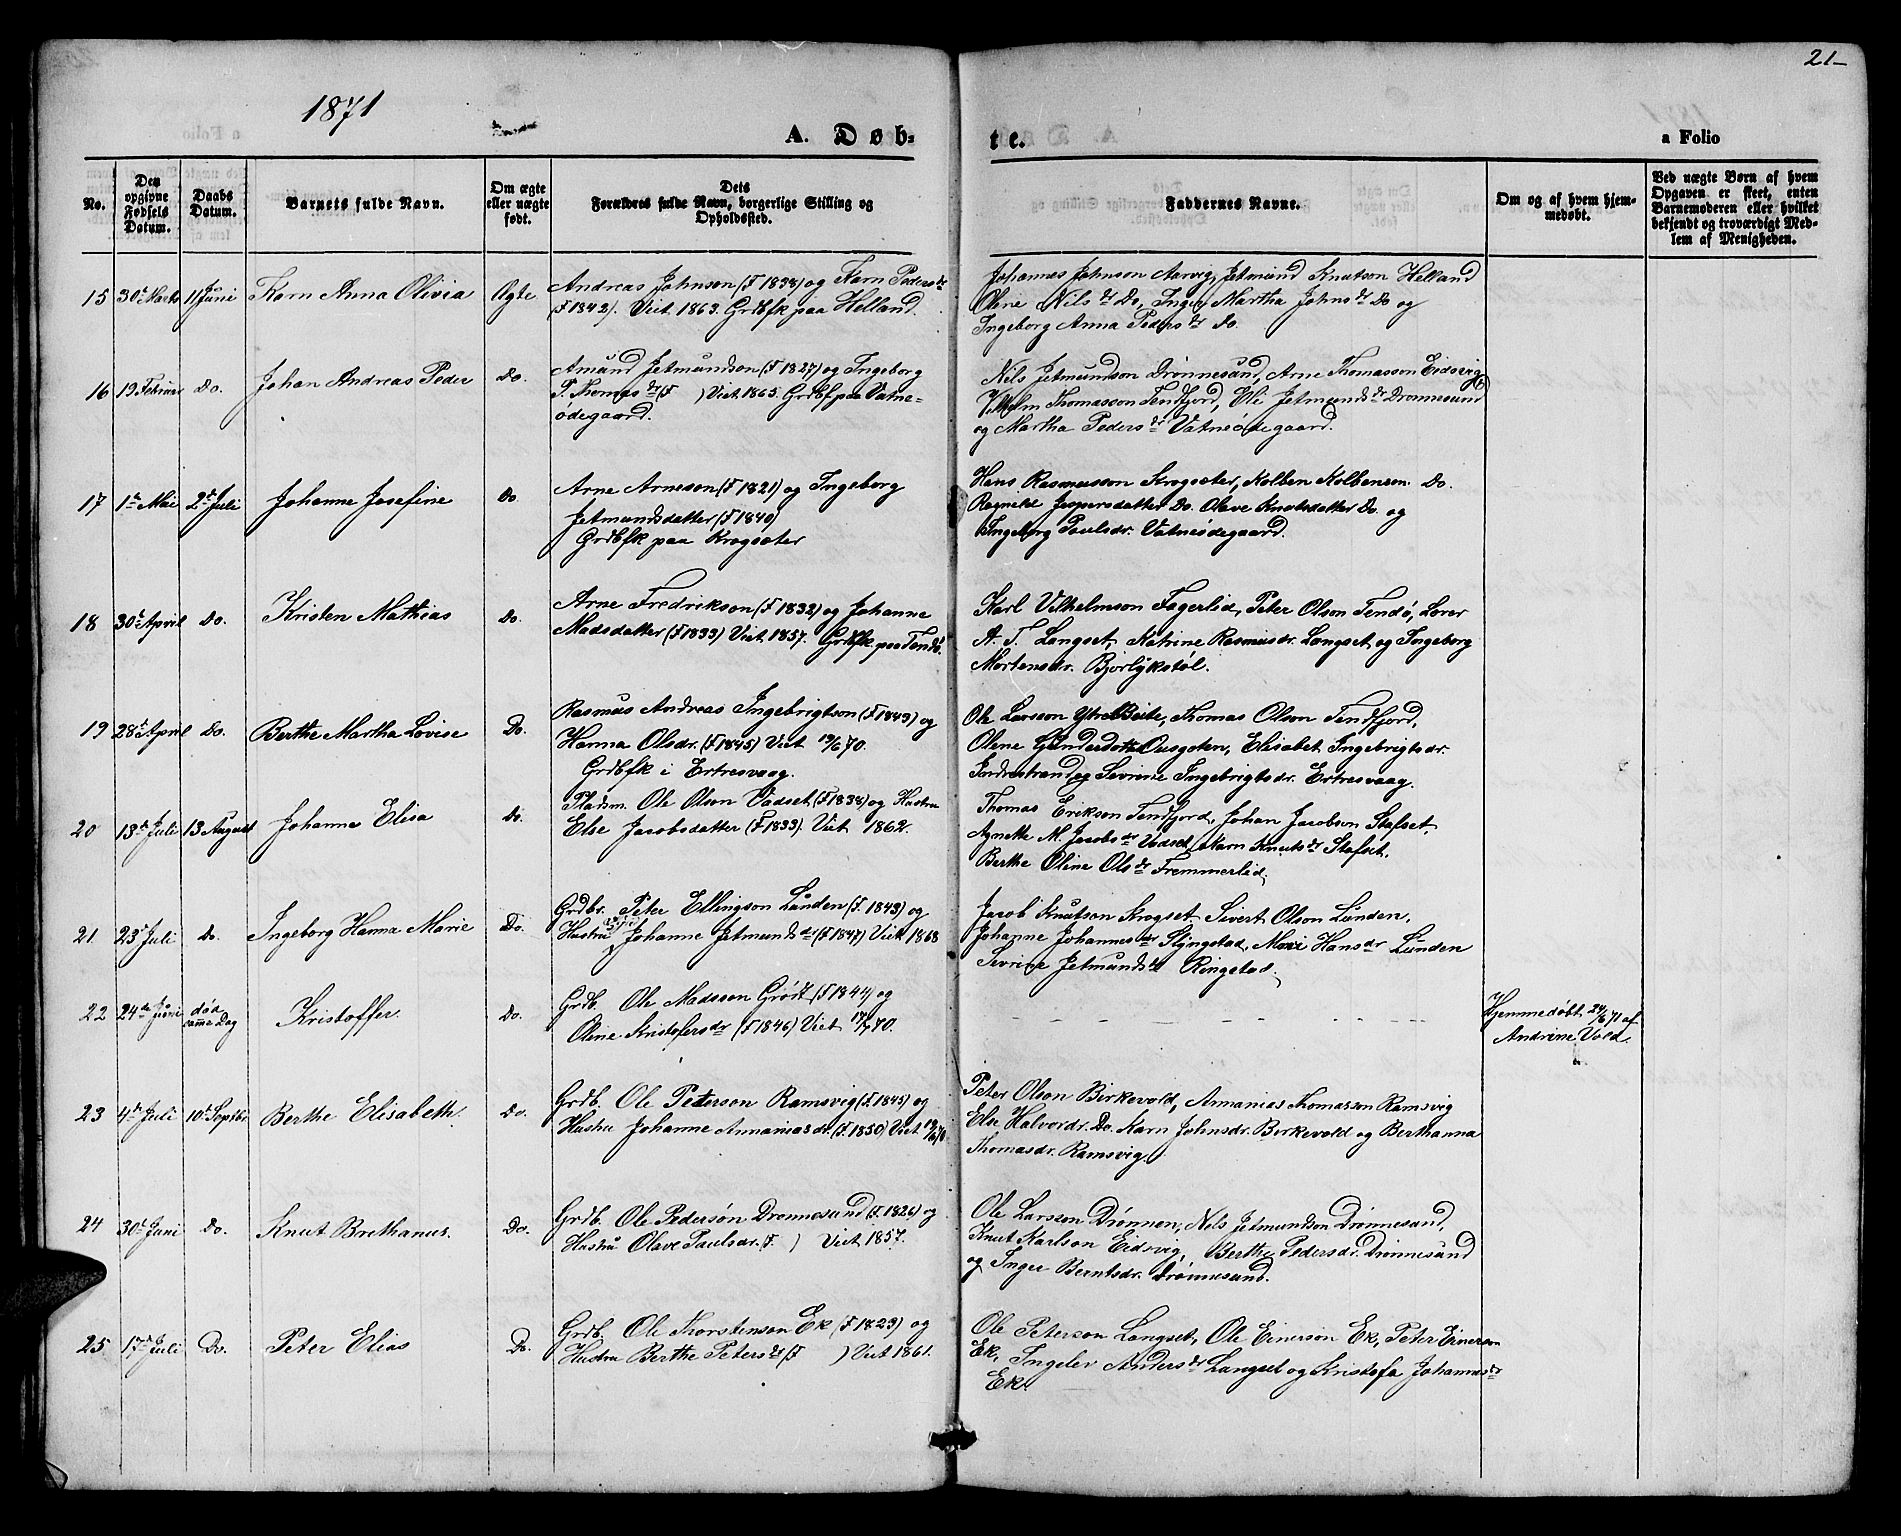 21-
1871
A. Døb-
te.
a Folio
No.
Den opgivne Fødsels Datum.
Daabs Datum.
Barnets fulde Navn.
Om ægte eller uægte født.
Dets Forældres fulde Navn, borgerlige Stilling og Opholdssted.
Faddernes Navne.
Om og af hvem hjemmedøbt.
Ved uægte Børn af hvem Opgaven er skeet, enten Barnemoderen eller hvilket bekjendt og troværdigt Medlem af Menigheden.
15 30te Marts 11 Juni Karn Anna Olivia Ægte
Andreas Johnson (F 1838) og Karn Pedersdr
(F 1842). Viet 1863. Grdbfk paa Helland.
Johannes Johnson Aarvig, Jetmund Knutson Helland
Olene Nilsdr Do, Inger Martha Johnsdr Do og
Ingeborg Anna Pedersdr Do.
16 19 Februar Do. Johan Andreas Peder Do.
Amund Jetmundson (F 1827) og Ingeborg
P. Thomasdr (F ) Viet. 1865. Grdbf paa Vatne=
ødegaard.
Nils Jetmundson Drønnesund, Arne Thomasson Eidsvig
Vilhelm Thomasson Tendfjord, Eli Jetmundsdr Drønnesund
og Martha Pedersdr Vatneødegaard.
17 1te Mai 2de Juli Johanne Josefine Do
Arne Arneson (F 1821) og Ingeborg
Jetmundsdatter (F 1840)
Grdbfk paa Krogsæter
Hans Rasmusson Krogsæter, Kolben Kolbenson Do.
Ragnild Jespersdatter Do. Olave Knutsdatter Do. og
Ingeborg Paulsdr. Vatneødegaard.
18 30te April Do. Kristen Mathias Do.
Arne Fredrikson (F 1832) og Johanne
Madsdatter (F 1833) Viet 1857. Grdbfk. paa Tendø.
Karl Vilhelmson Fagerlid, Peter Olson Tendø, Lærer
A. T. Langset, Katrine Rasmusdr. Langset og Ingeborg
Mortensdr. Bjorlykstøl.
19 28de April Do. Berthe Martha Lovise Do.
Rasmus Andreas Ingebrigtson (F 1849) og
Hanna Olsdr. (F 1845) Viet 19/6 70.
Grdbfk i Ertresvaag.
Ole Larsson Ytre Beite, Thomas Olson Tendfjord,
Olene Gundersdatter Ousgoten, Elisabet Ingebrigtsdr.
Indrestrand og Sevrine Ingebrigtsdr. Ertresvaag.
20 13de Juli 13 August Johanna Elisa Do.
Pladsm. Ole Olson Vadset (F 1838) og Hustru
Else Jacobsdatter (F 1833). Viet 1862.
Thomas Erikson Tendfjord, Johan Jacobson Stafset,
Agnethe M. Jacobsdr Vadset, Karn Knutsdr Stafset,
Berthe Oline Olsdr Fremmerlid.
21. 23de Juli Do. Ingeborg Hanna Marie Do.
Grdbr. Peter Ellingson Lunden (F. 1843) og
Hustru Johanne Jetmundsdr (F 1847) Viet 1868
Jacob Knutson Krogset. Sivert Olson Lunden,
Johanne Johannesdr Slyngstad, Mari Hansdr Lunden
Sevrine Jetmundsdr Ringstad.
22 24de Juni død samme Dag Kristoffer. Do.
Grdb. Ole Madsson Grødt (F 1844) og
Oline Kristofersdr (F 1846) Viet 17/7 70.
Hjemmedøbt 24/6 71 af
Andrine Vold.
23 4de Juli 10de Septbr Berthe Elisabeth. Do.
Grdb. Ole Peterson Ramsvig (F. 1845) og
Hustru Johanne Annaniasdr. (F. 1850) Viet 19/6 70.
Peter Olson Birkevold, Annanias Thomasson Ramsvig
Else Halvordr. Do. Karn Johnsdr. Birkevold og Berthanna
Thomasdr. Ramsvig.
24 30te Juni Do. Knut Brethanus. Do.
Grdb. Ole Pedersøn Drønnesund (F. 1826) og
Hustru Olave Paulsdr. (F. ) Viet 1857.
Ole Larsson Drønnen, Nils Jetmundson Drønnesund,
Knut Karlson Eidsvig, Berthe Pedersdr. Drønnesund
og Inger Berntsdr. Drønnesund.
25 17de Juli Do. Peter Elias Do.
Grdb. Ole Thorstenson Ek (F 1823) og
Hustru Berthe Petersdr (F ) Viet 1861.
Ole Peterson Langset, Ole Einerson Ek, Peter Einerson
Ek, Ingelev Andersdr Langset og Kristofa Johannesdr
Ek.